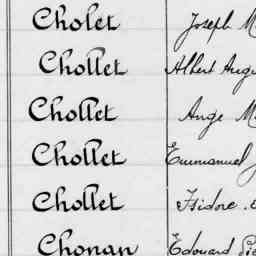 Cholet Joseph M
Chollet Albert Augu
Chollet Ange M
Chollet Emmanuel J
Chollet Isidore
Chonan Edouard